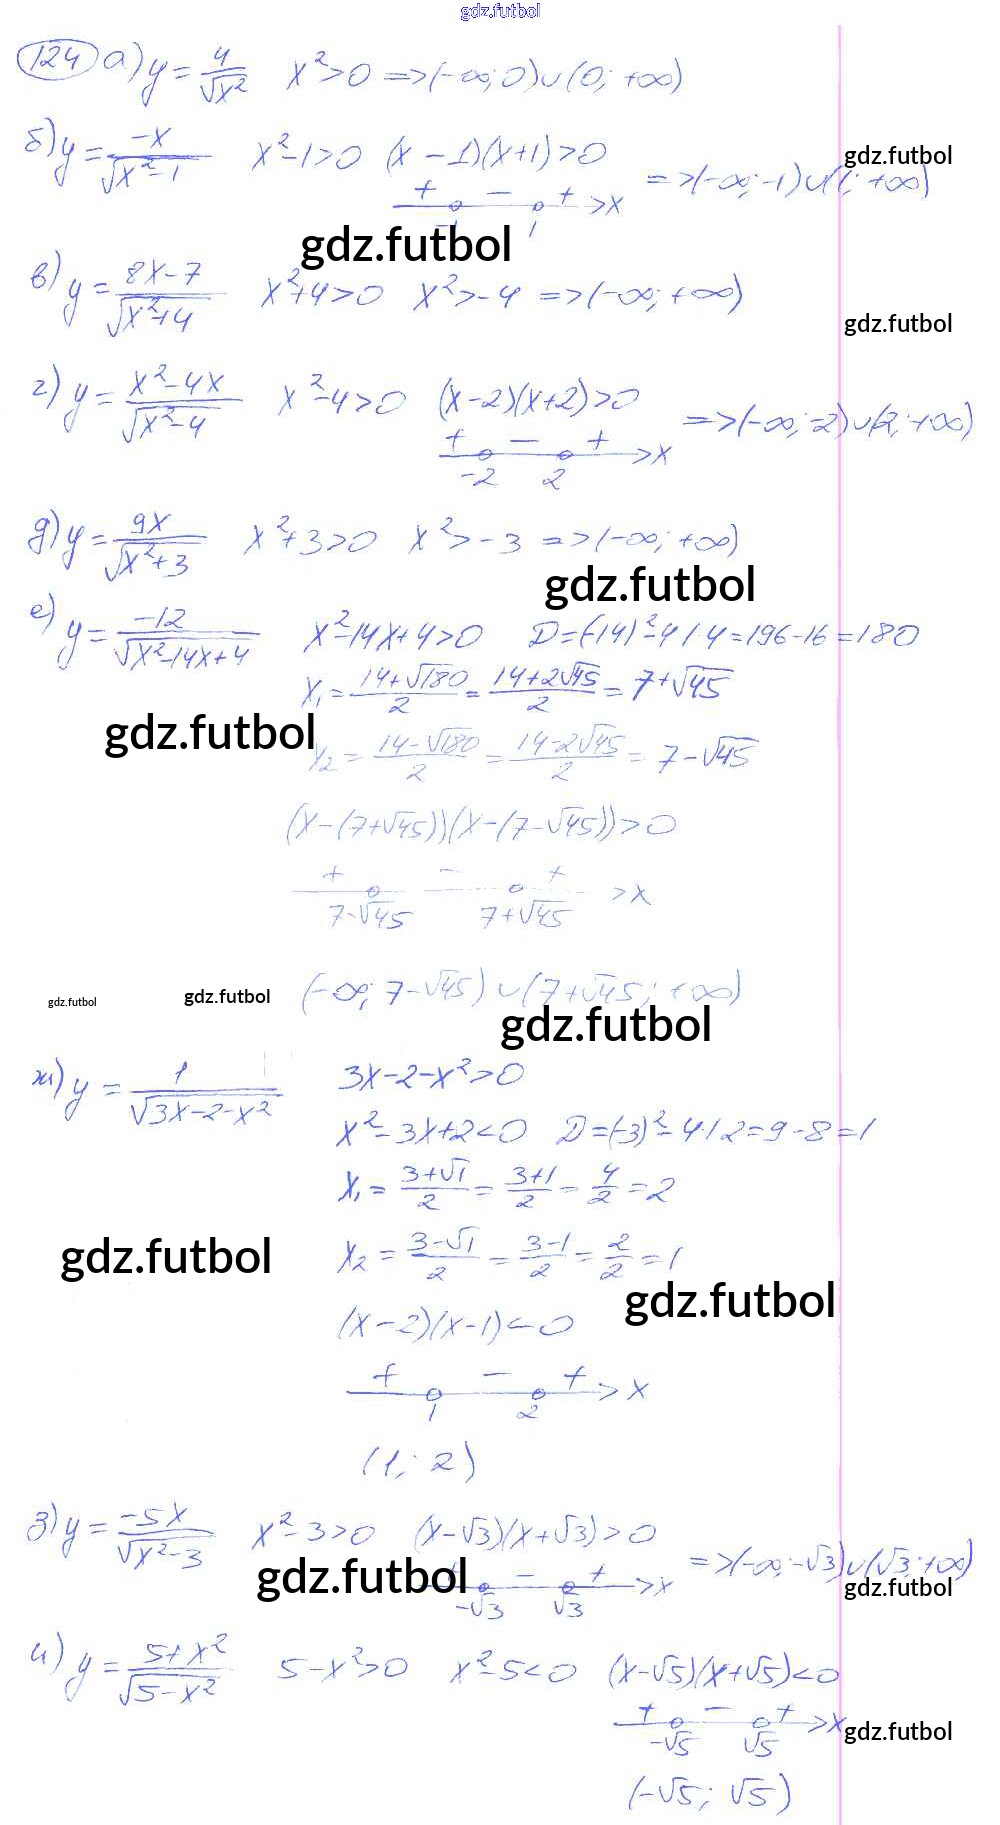 gdz.futbol
124 а) y = 4/√x² x² > 0 => (-∞; 0) ∪ (0; +∞)
б) y = -x/√x²-1 x²-1 > 0 (x - 1)(x+1) > 0 => (-∞; -1) ∪ (1; +∞)
gdz.futbol
+ - + > x
-1 1
gdz.futbol
в) y = 8x-7/√x²+4 x²+4 > 0 x² > -4 => (-∞; +∞)
gdz.futbol
г) y = x²-4x/√x²-4 x²-4 > 0 (x-2)(x+2) > 0 => (-∞; -2) ∪ (2; +∞)
+ - + > x
-2 2
д) y = 9x/√x²+3 x²+3 > 0 x² > -3 => (-∞; +∞)
gdz.futbol
е) y = -12/√x²-14x+4 x²-14x+4 > 0 D = (-14)²-4·1·4 = 196-16 = 180
x₁ = 14+√180/2 = 14+2√45/2 = 7+√45
gdz.futbol
x₂ = 14-√180/2 = 14-2√45/2 = 7-√45
(x-(7+√45))(x-(7-√45)) > 0
+ - + > x
7-√45 7+√45
(-∞; 7-√45) ∪ (7+√45; +∞)
gdz.futbol gdz.futbol
gdz.futbol
ж) y = 1/√3x-2-x² 3x-2-x² > 0
x²-3x+2 < 0 D = (-3)²-4·1·2 = 9-8 = 1
x₁ = 3+√1/2 = 3+1/2 = 4/2 = 2
gdz.futbol
x₂ = 3-√1/2 = 3-1/2 = 2/2 = 1
gdz.futbol
(x-2)(x-1) < 0
+ - + > x
1 2
(1; 2)
з) y = -5x/√x²-3 x²-3 > 0 (x-√3)(x+√3) > 0 => (-∞; -√3) ∪ (√3; +∞)
gdz.futbol
+ - + > x
gdz.futbol
-√3 √3
и) y = 5+x²/√5-x² 5-x² > 0 x²-5 < 0 (x-√5)(x+√5) < 0
+ - + > x
gdz.futbol
-√5 √5
(-√5; √5)